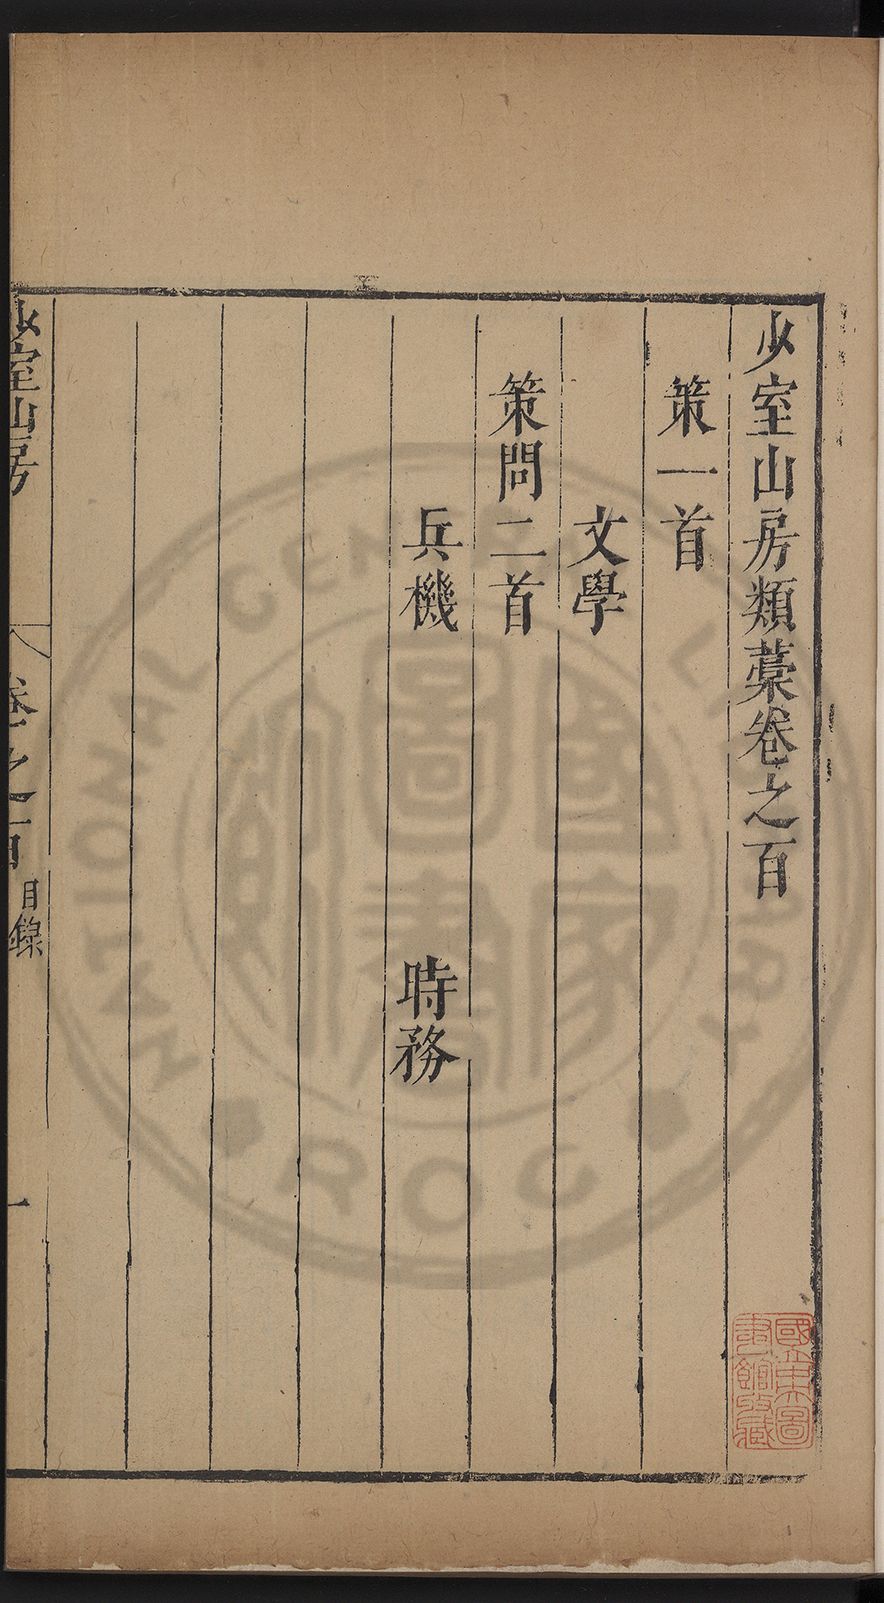 少室山房類藁卷之百
策一首
文學
策問二首
兵機 時務
少室山房 卷之百 目錄 一
國立中央圖書館收藏
國家圖書館
NATIONAL CENTRAL LIBRARY R.O.C